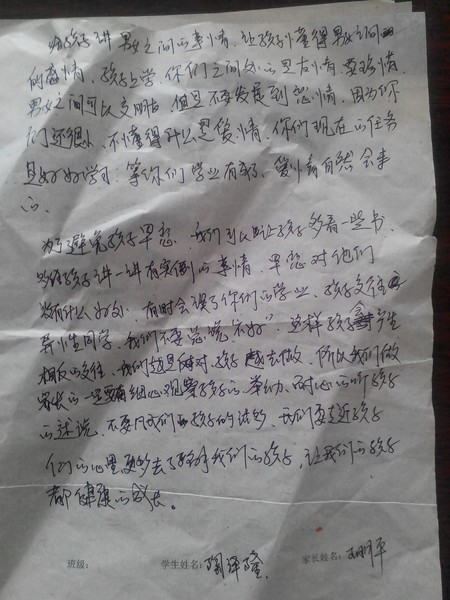 给孩子讲男女之间的事情，让孩子懂得男女之间
的友情，孩子上学，你们之间知的是友情，要珍惜，
男女之间可以交朋友，但是不要发展到恋情，因为你
们还很小，不懂得什么是爱情，你们现在的任务
是好好学习，等你们学业有成，爱情自然会来
的。
为了避免孩子早恋，我们可以让孩子多看一些书，
多给孩子讲一讲有实例的事情，早恋对他们
没有什么好处，有时会误了你们的学业，孩子交往
异性同学，我们不要总说“不好”，这样孩子会产生
相反的交往，我们越是反对，孩子越去做，所以我们做
家长的一定要细心观察孩子的举动，耐心的听孩子
的述说，不要用我们的孩子的话，我们要走近孩子
们的心里，更多去了解我们的孩子，让我们的孩子
都健康的成长。
班级： 学生姓名：陶泽隆 家长姓名：